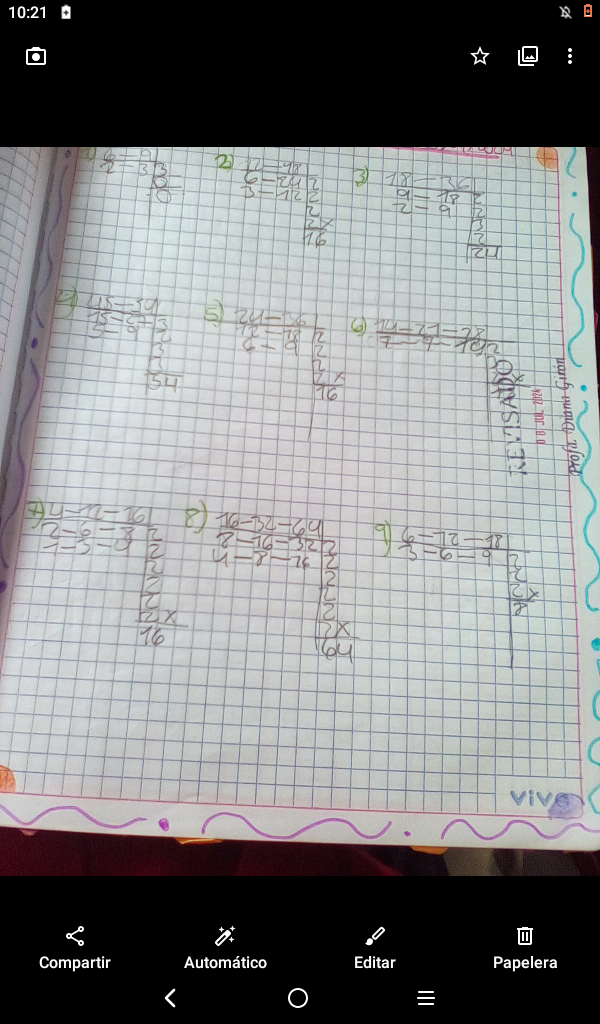 10:21
1) 6 - 9
2 - 3 3
0
0
2) 12-48
6-24 2
3-12 2
2
2x
16
3) 18-36
9-18 2
2-9 2
3
2
24
4) 45-54
15-
5-9
3
3
54
5) 24-36
12-18 2
6-9 2
2
2x
16
6) 14-21-28
7-7-14 2
REVISADO
08 JUL 2024
Profa. Diana Girón
7) 4-12-16
2-6-8 2
1-3-4 2
2
2
2
2x
16
8) 16-32-64
8-16-32 2
4-8-16 2
2
2
2
2x
64
9) 6-12-18
3-6-9 2
2
2x
8
vivo
Compartir
Automático
Editar
Papelera